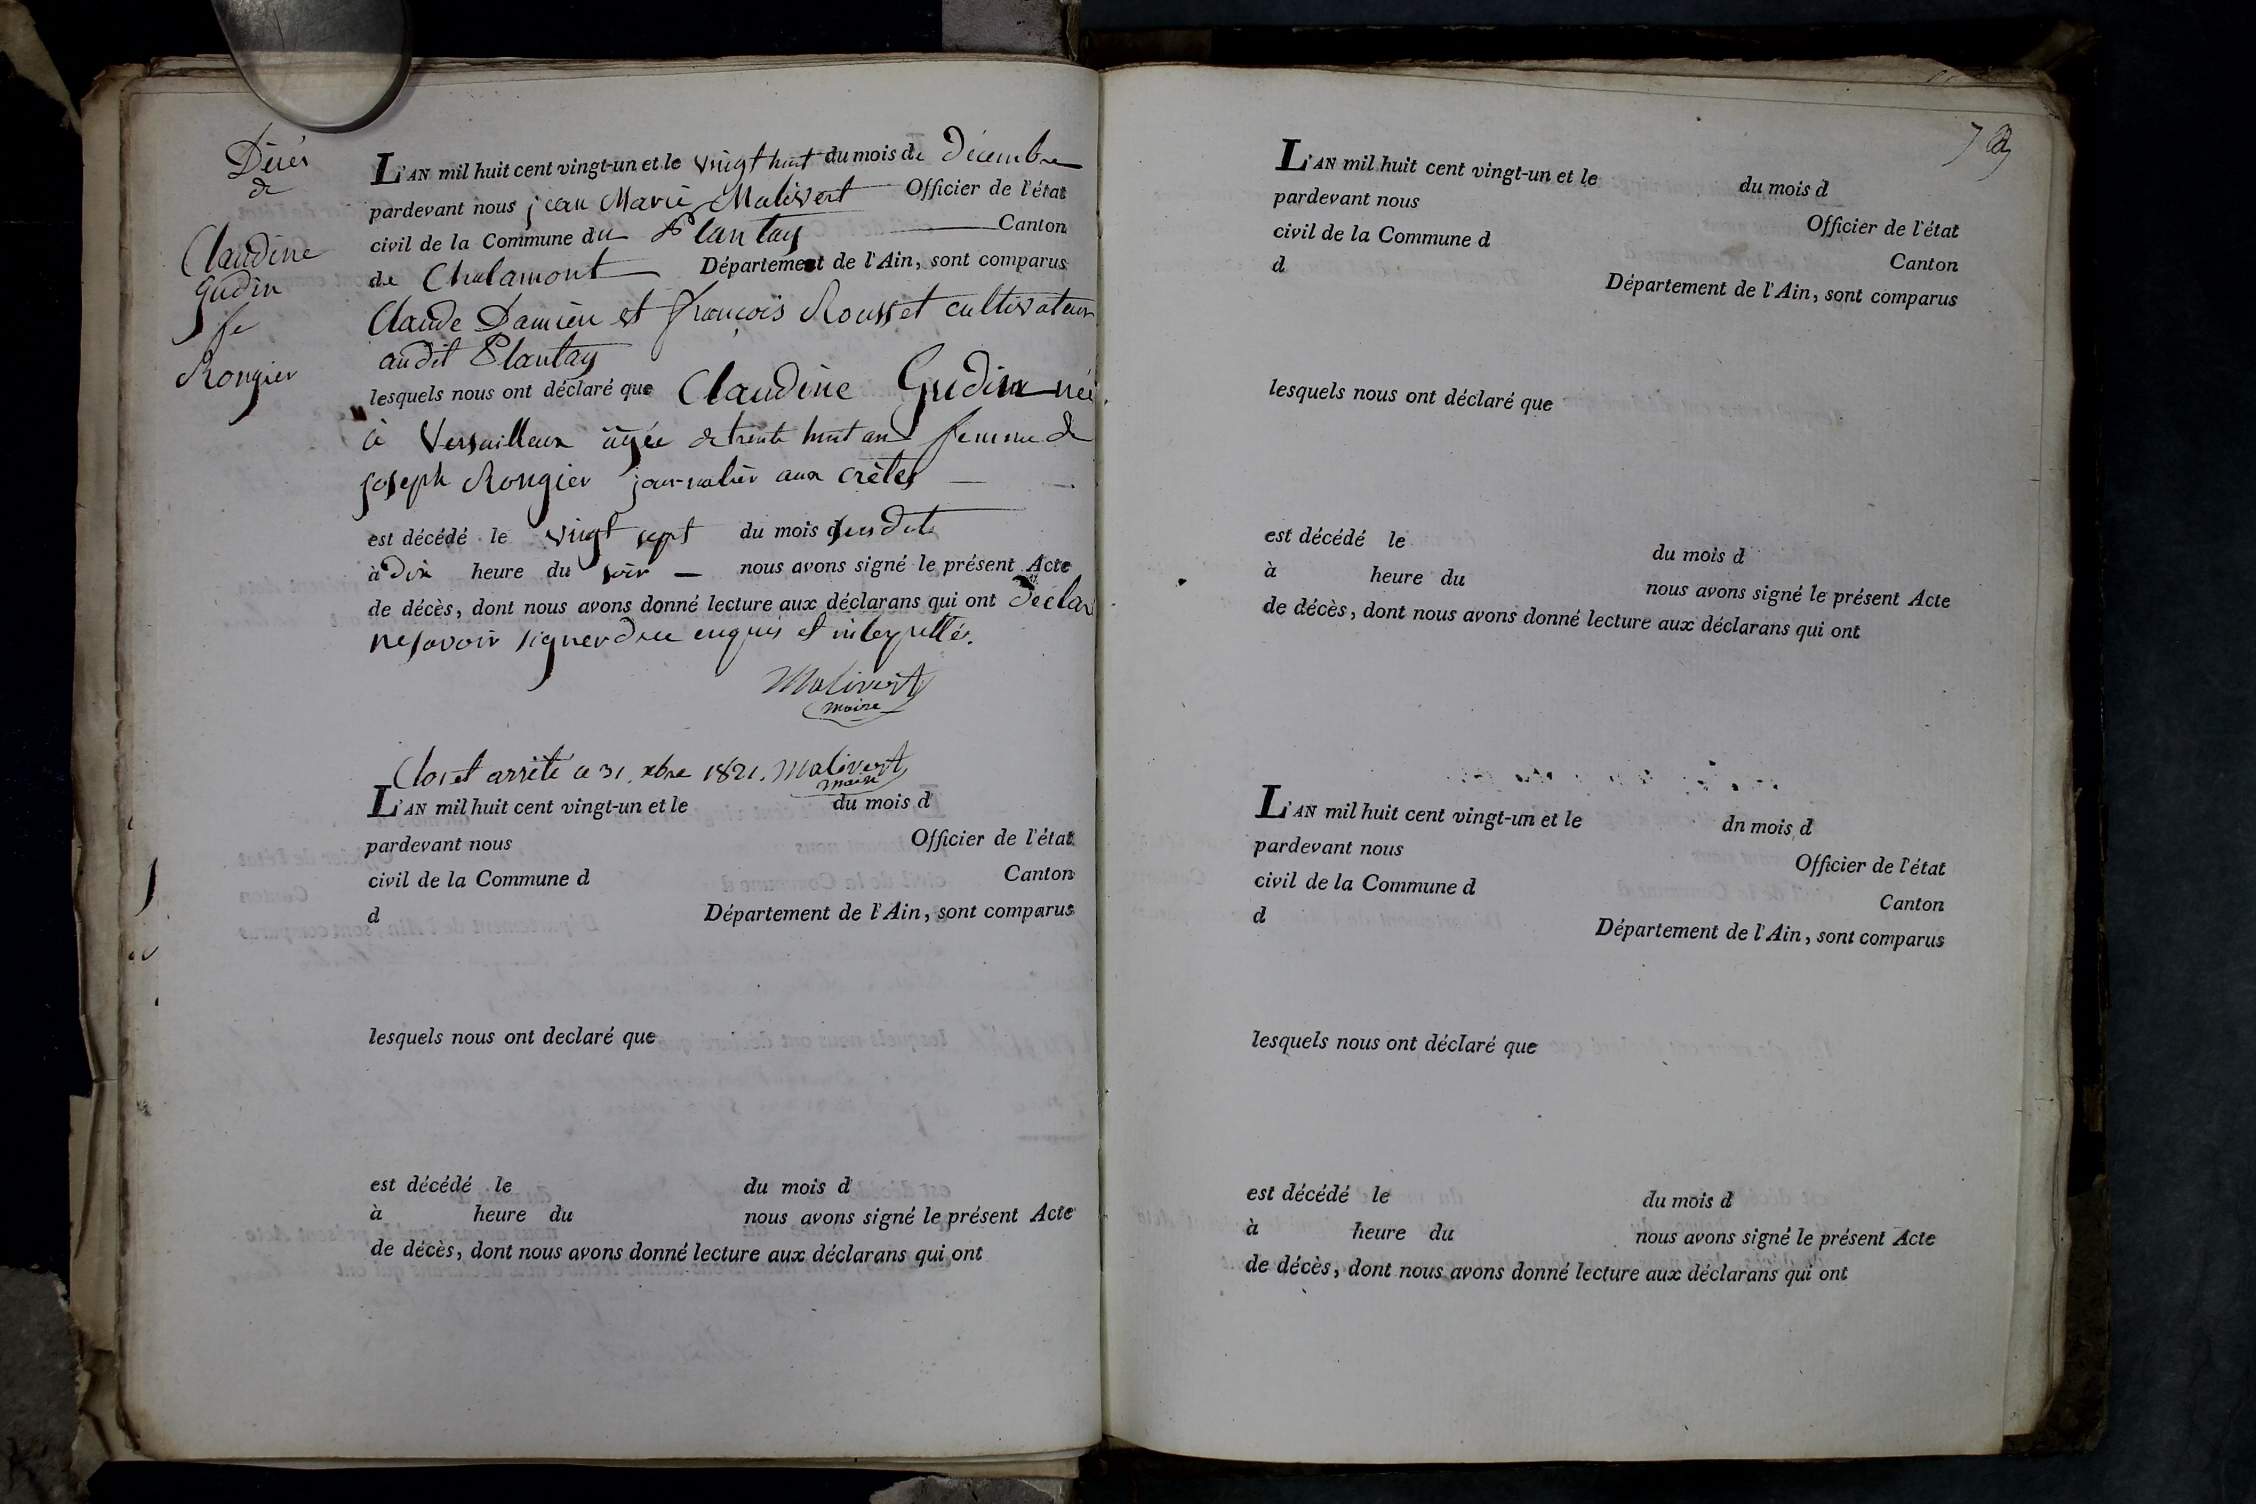 Décès
de
Claudine
Gudin
fe
Rongier
L'AN mil huit cent vingt-un et le vingt huit du mois de décembre
pardevant nous jean Marie Malivert Officier de l'état
civil de la Commune du Plantay Canton
de Chalamont Département de l'Ain, sont comparus
Claude Damien et françois Rousset cultivateurs
audit Plantay
lesquels nous ont déclaré que Claudine Gudin née
à Versailleux âgée de trente huit ans femme de
joseph Rongier journalier aux crètes
est décédé le vingt sept du mois susdit
à dix heure du soir nous avons signé le présent Acte
de décès, dont nous avons donné lecture aux déclarans qui ont déclaré
ne savoir signer de ce enquis et interpellés.
Malivert
maire
Clos et arrêté ce 31 xbre 1821. Malivert
maire
L'AN mil huit cent vingt-un et le du mois d
pardevant nous Officier de l'état
civil de la Commune d Canton
d Département de l'Ain, sont comparus
lesquels nous ont declaré que
est décédé le du mois d
à heure du nous avons signé le présent Acte
de décès, dont nous avons donné lecture aux déclarans qui ont
L'AN mil huit cent vingt-un et le du mois d
pardevant nous Officier de l'état
civil de la Commune d Canton
d Département de l'Ain, sont comparus
lesquels nous ont déclaré que
est décédé le du mois d
à heure du nous avons signé le présent Acte
de décès, dont nous avons donné lecture aux déclarans qui ont
L'AN mil huit cent vingt-un et le dn mois d
pardevant nous Officier de l'état
civil de la Commune d Canton
d Département de l'Ain, sont comparus
lesquels nous ont déclaré que
est décédé le du mois d
à heure du nous avons signé le présent Acte
de décès, dont nous avons donné lecture aux déclarans qui ont